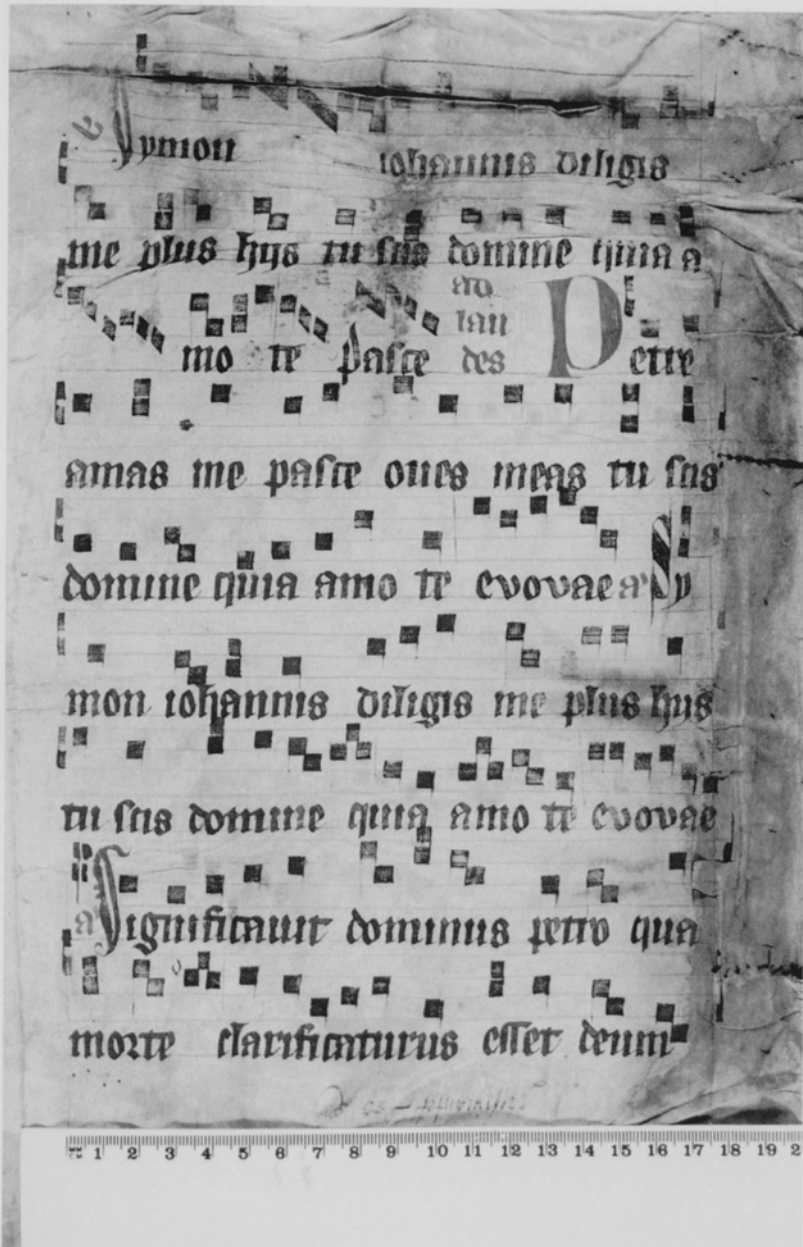 a Symon iohannis diligis
me plus hijs tu scis domine quia a
mo te pasce
ad
lau
des
Petre
amas me pasce oues meas tu scis
domine quia amo te evovae a Sy
mon iohannis diligis me plus hijs
tu scis domine quia amo te evovae
a Significauit dominus petro qua
morte clarificaturus esset deum
1 2 3 4 5 6 7 8 9 10 11 12 13 14 15 16 17 18 19 2